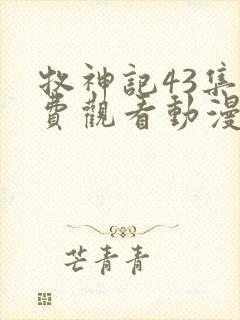 牧神記43集
費觀看動漫
芒青青